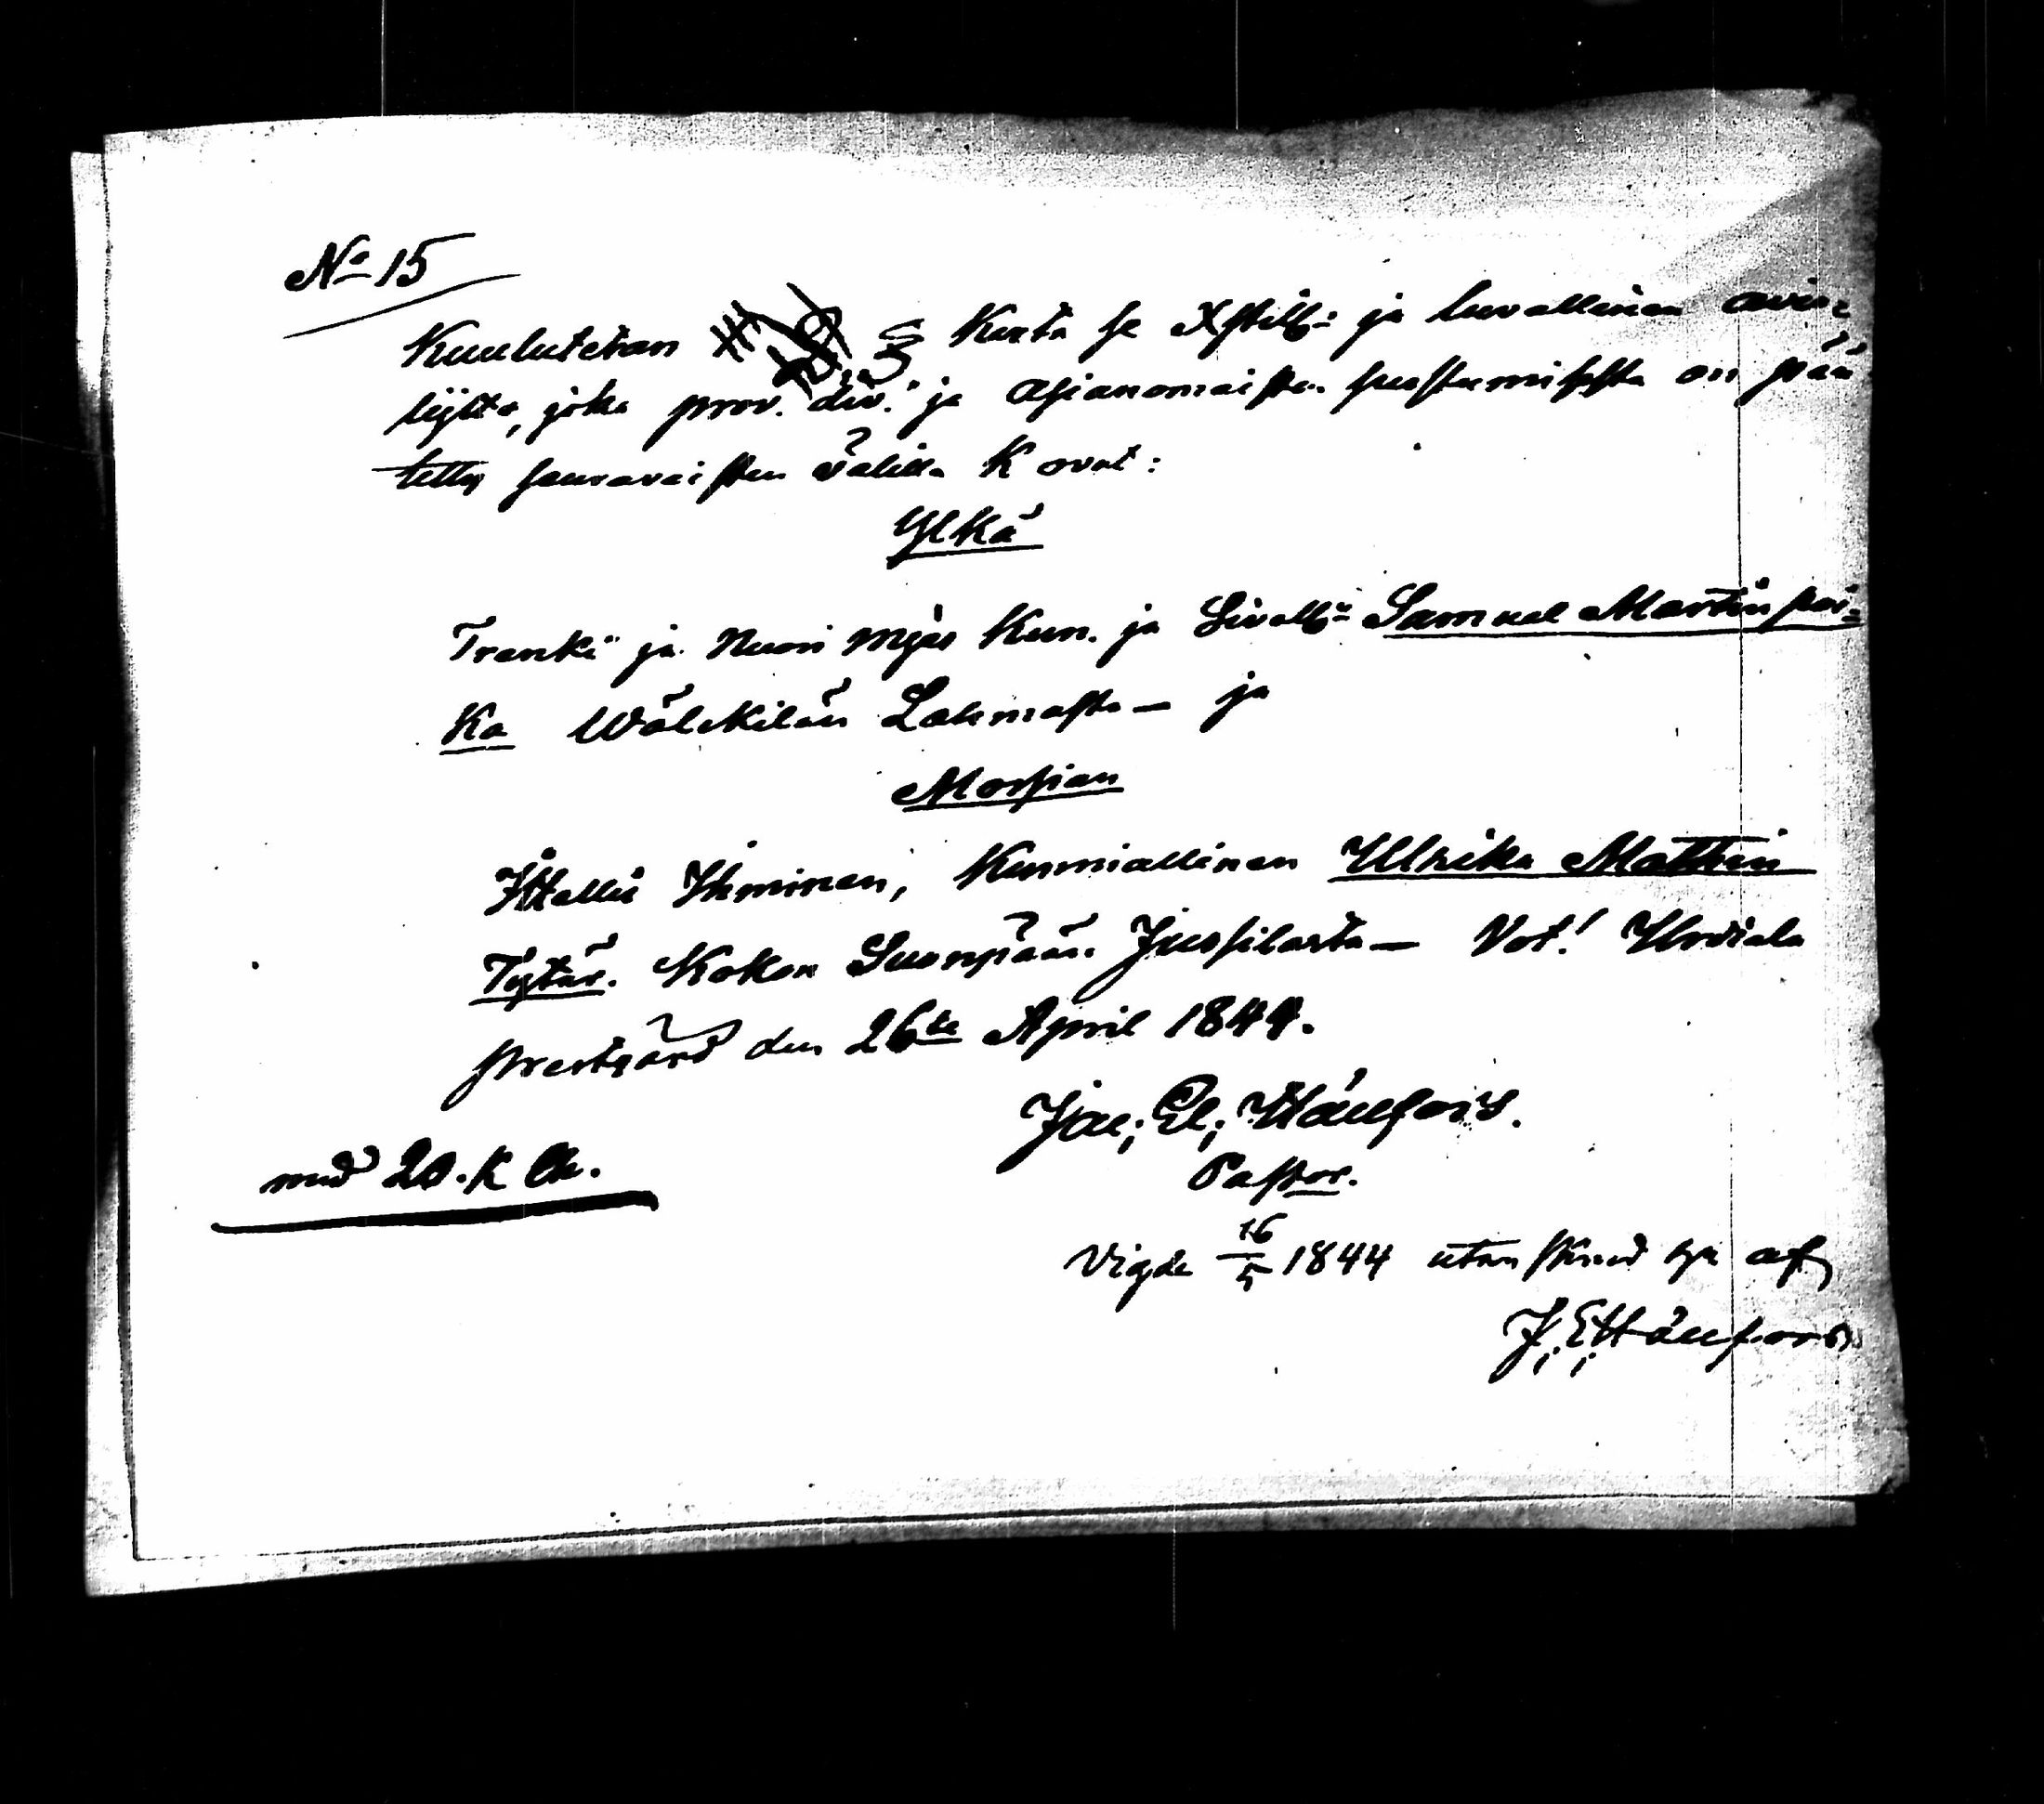 No 15
Kuulutetan 3 Kerta se Xstill: ja luvallinen avio=
lijtto, joka prov. div. ja asianomaisten suostumisesta on pää
tetty seuravaisten välillä K ovat:
Ylkä
Trenki ja Nuori Mjes Kun. ja Sivell: Samuel Martin poi=
Ka Wälckilän Lahmasta — ja
Morsian
Itellis Ihminen, Kunniallinen Ulrika Mattin
Tytär. Kokon Suonpään Jussilasta — Not! Urdiala
Prestgård den 26te April 1844.
Jac; El; Hällfors.
Pastor.
med 20. K
Vigde 16/5 1844 utan af
J; E; Hällfors